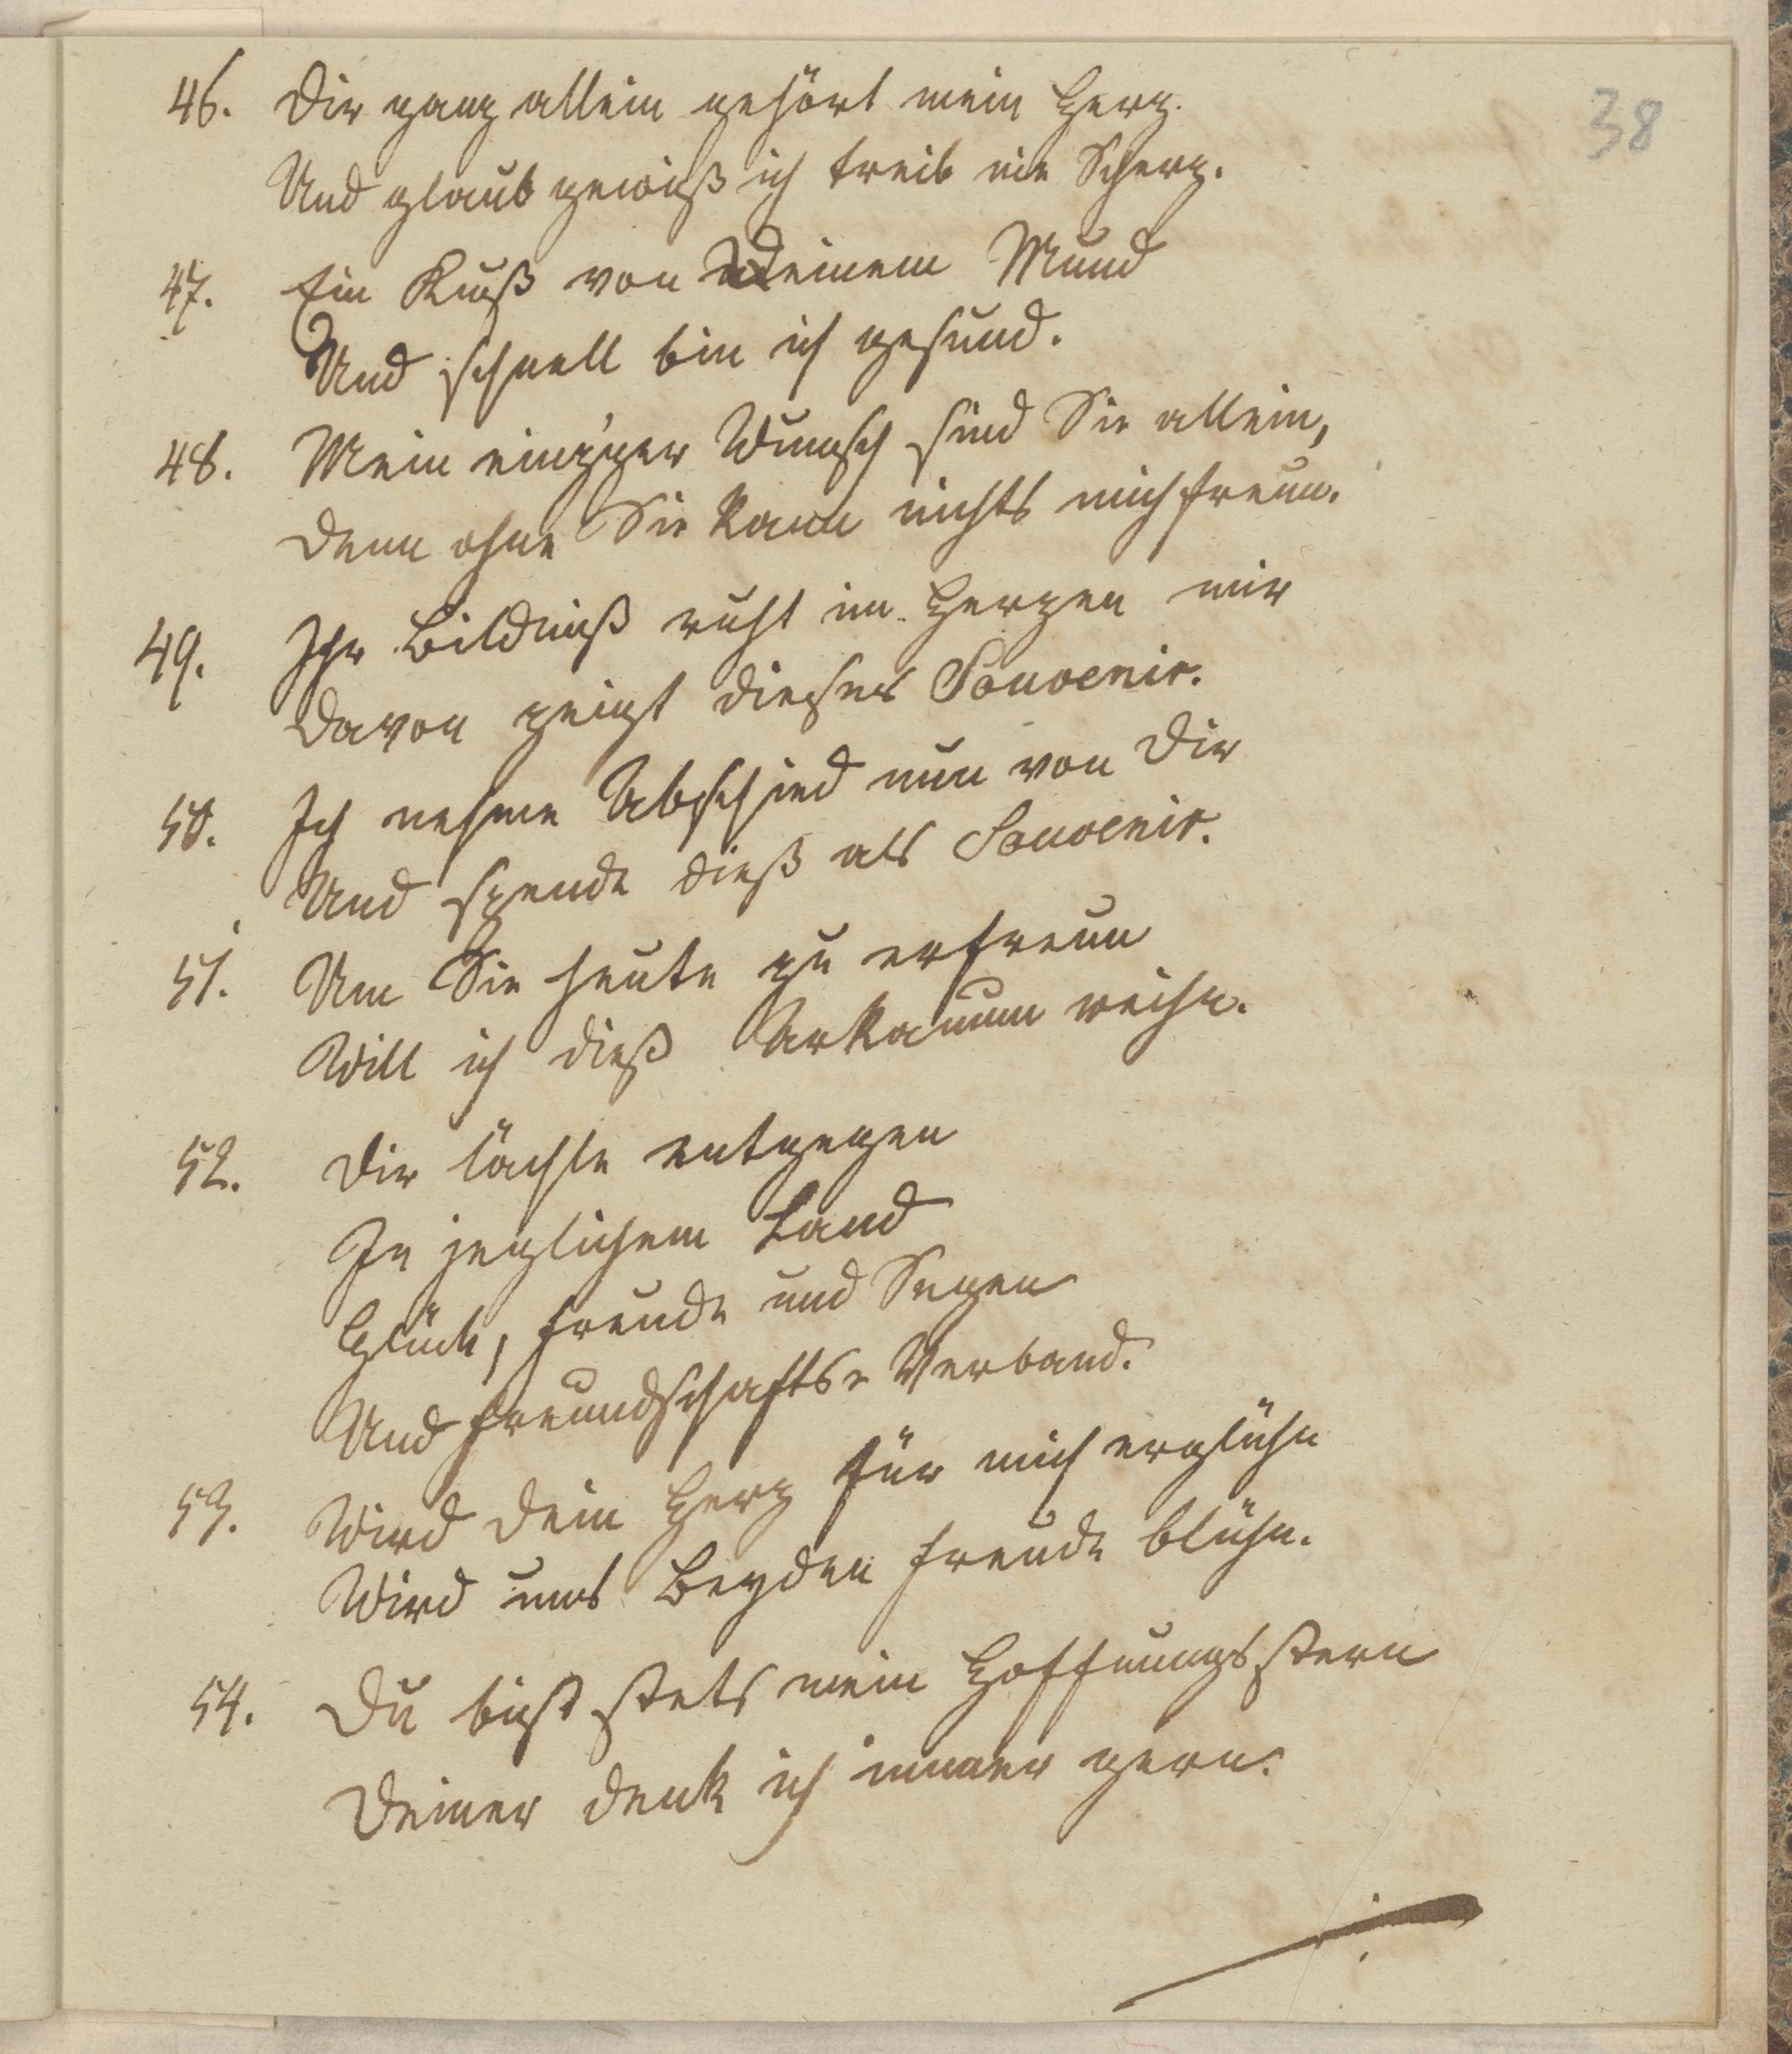 38
46. Dir ganz allein gehört mein Herz.
Und glaub gewiß ich treib nie Scherz.
47. Ein Kuß von Deinem Mund
Und schnell bin ich gesund.
48. Mein einz'ger Wunsch sind Sie allein,
Denn ohne Sie kann nichts mich freun.
49. Ihr Bildniß ruht im Herzen mir
Davon zeigt dieses Souvenir.
50. Ich nehme Abschied nun von Dir
Und spende dieß als Souvenir.
51. Um Sie heute zu erfreun
Will ich dieß Arkanum weihn.
52. Dir lächle entgegen
In jeglichem Land
Glück, Freude und Segen
Und Freundschafts-Verband.
53. Wird Dein Herz für mich erglühn
Wird uns Beyden Freude blühn.
54. Du bist stets mein Hoffnungsstern
Deiner denk ich immer gern.